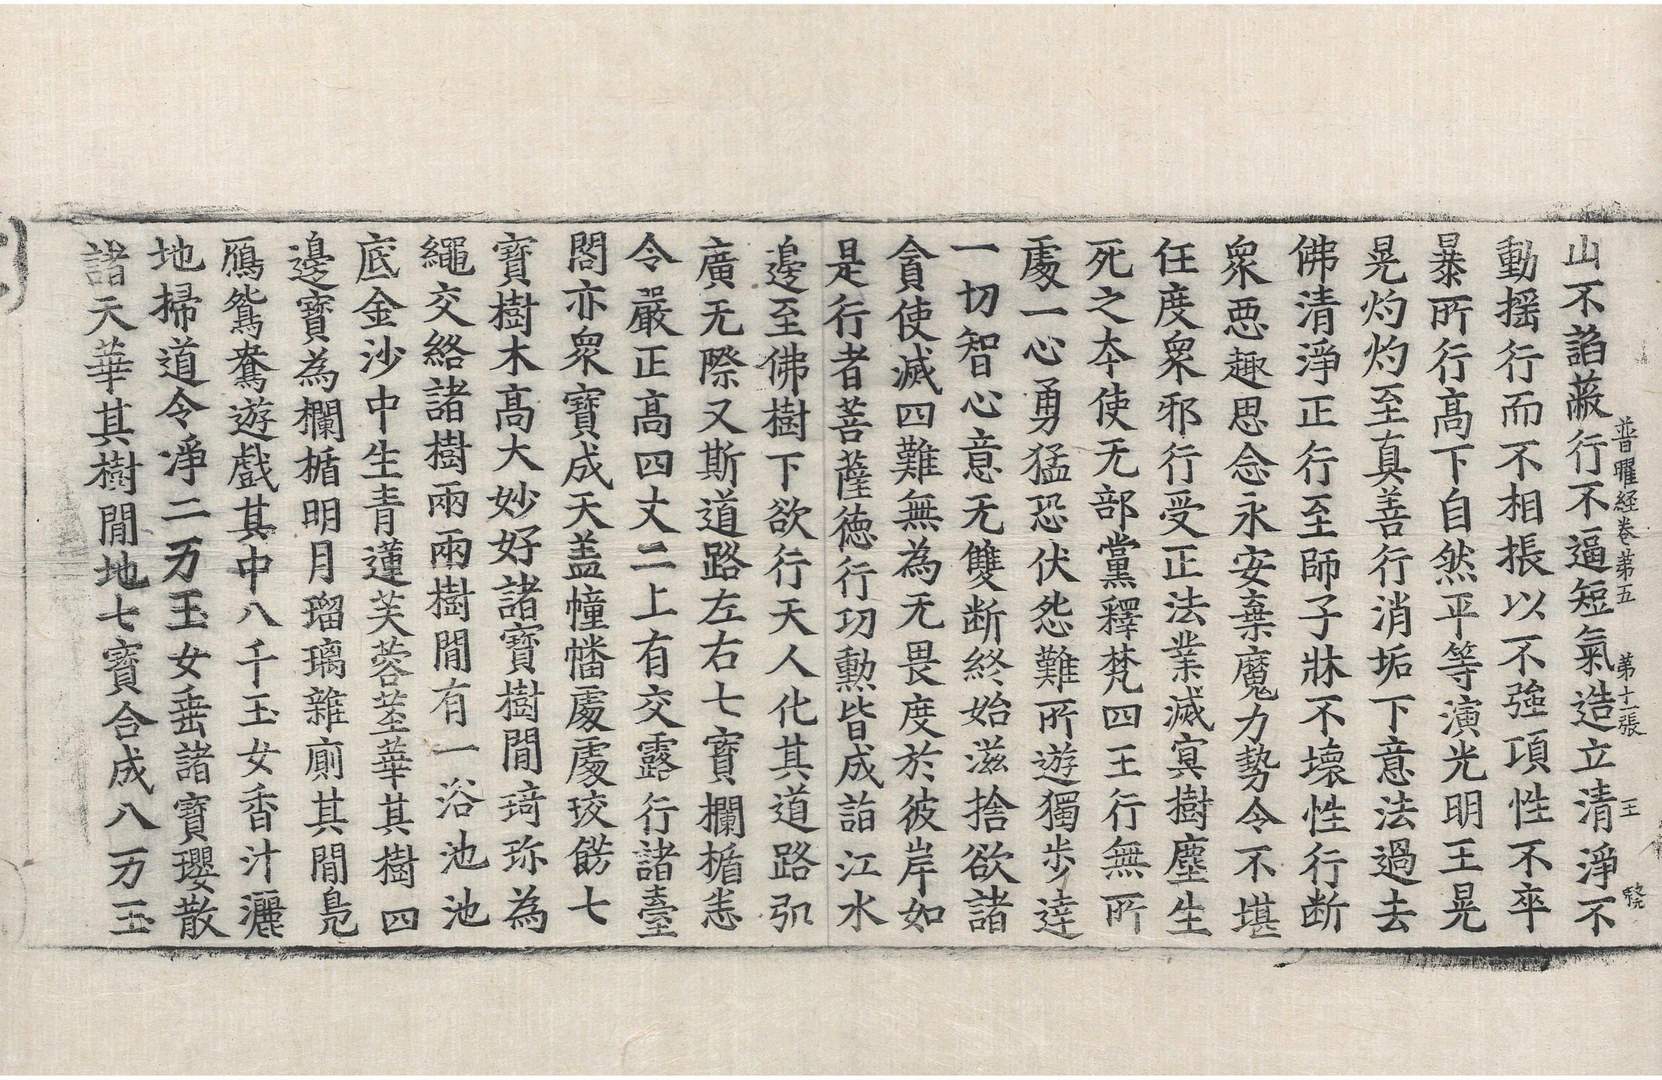 普曜経卷第五　第十二張　王　驍
山不諂蔽行不逼短氣造立清淨不
動揺行而不相掁以不強項性不卒
暴所行高下自然平等演光明王晃
晃灼灼至真善行消垢下意法過去
佛清淨正行至師子牀不壞性行断
衆惡趣思念永安棄魔力勢令不堪
任度衆邪行受正法業滅冥樹塵生
死之夲使无部黨釋梵四王行無所
處一心勇猛恐伏怨難所遊獨步逹
一切智心意无雙断終始滋捨欲諸
貪使滅四難無為无畏度於彼岸如
是行者菩薩徳行功勲皆成詣江水
邊至佛樹下欲行天人化其道路弘
廣无際又斯道路左右七寳欄楯悉
令嚴正高四丈二上有交露行諸臺
閣亦衆寶成天盖幢幡處處珓餝七
寶樹木高大妙好諸寶樹間琦珎為
繩交絡諸樹兩兩樹間有一浴池池
底金沙中生青蓮芙蓉莖華其樹四
邊寶為欄楯明月瑠璃雜廁其間鳬
鴈鴛鴦遊戲其中八千玉女香汁灑
地掃道令淨二万玉女垂諸寶瓔散
諸天華其樹間地七寶合成八万玉